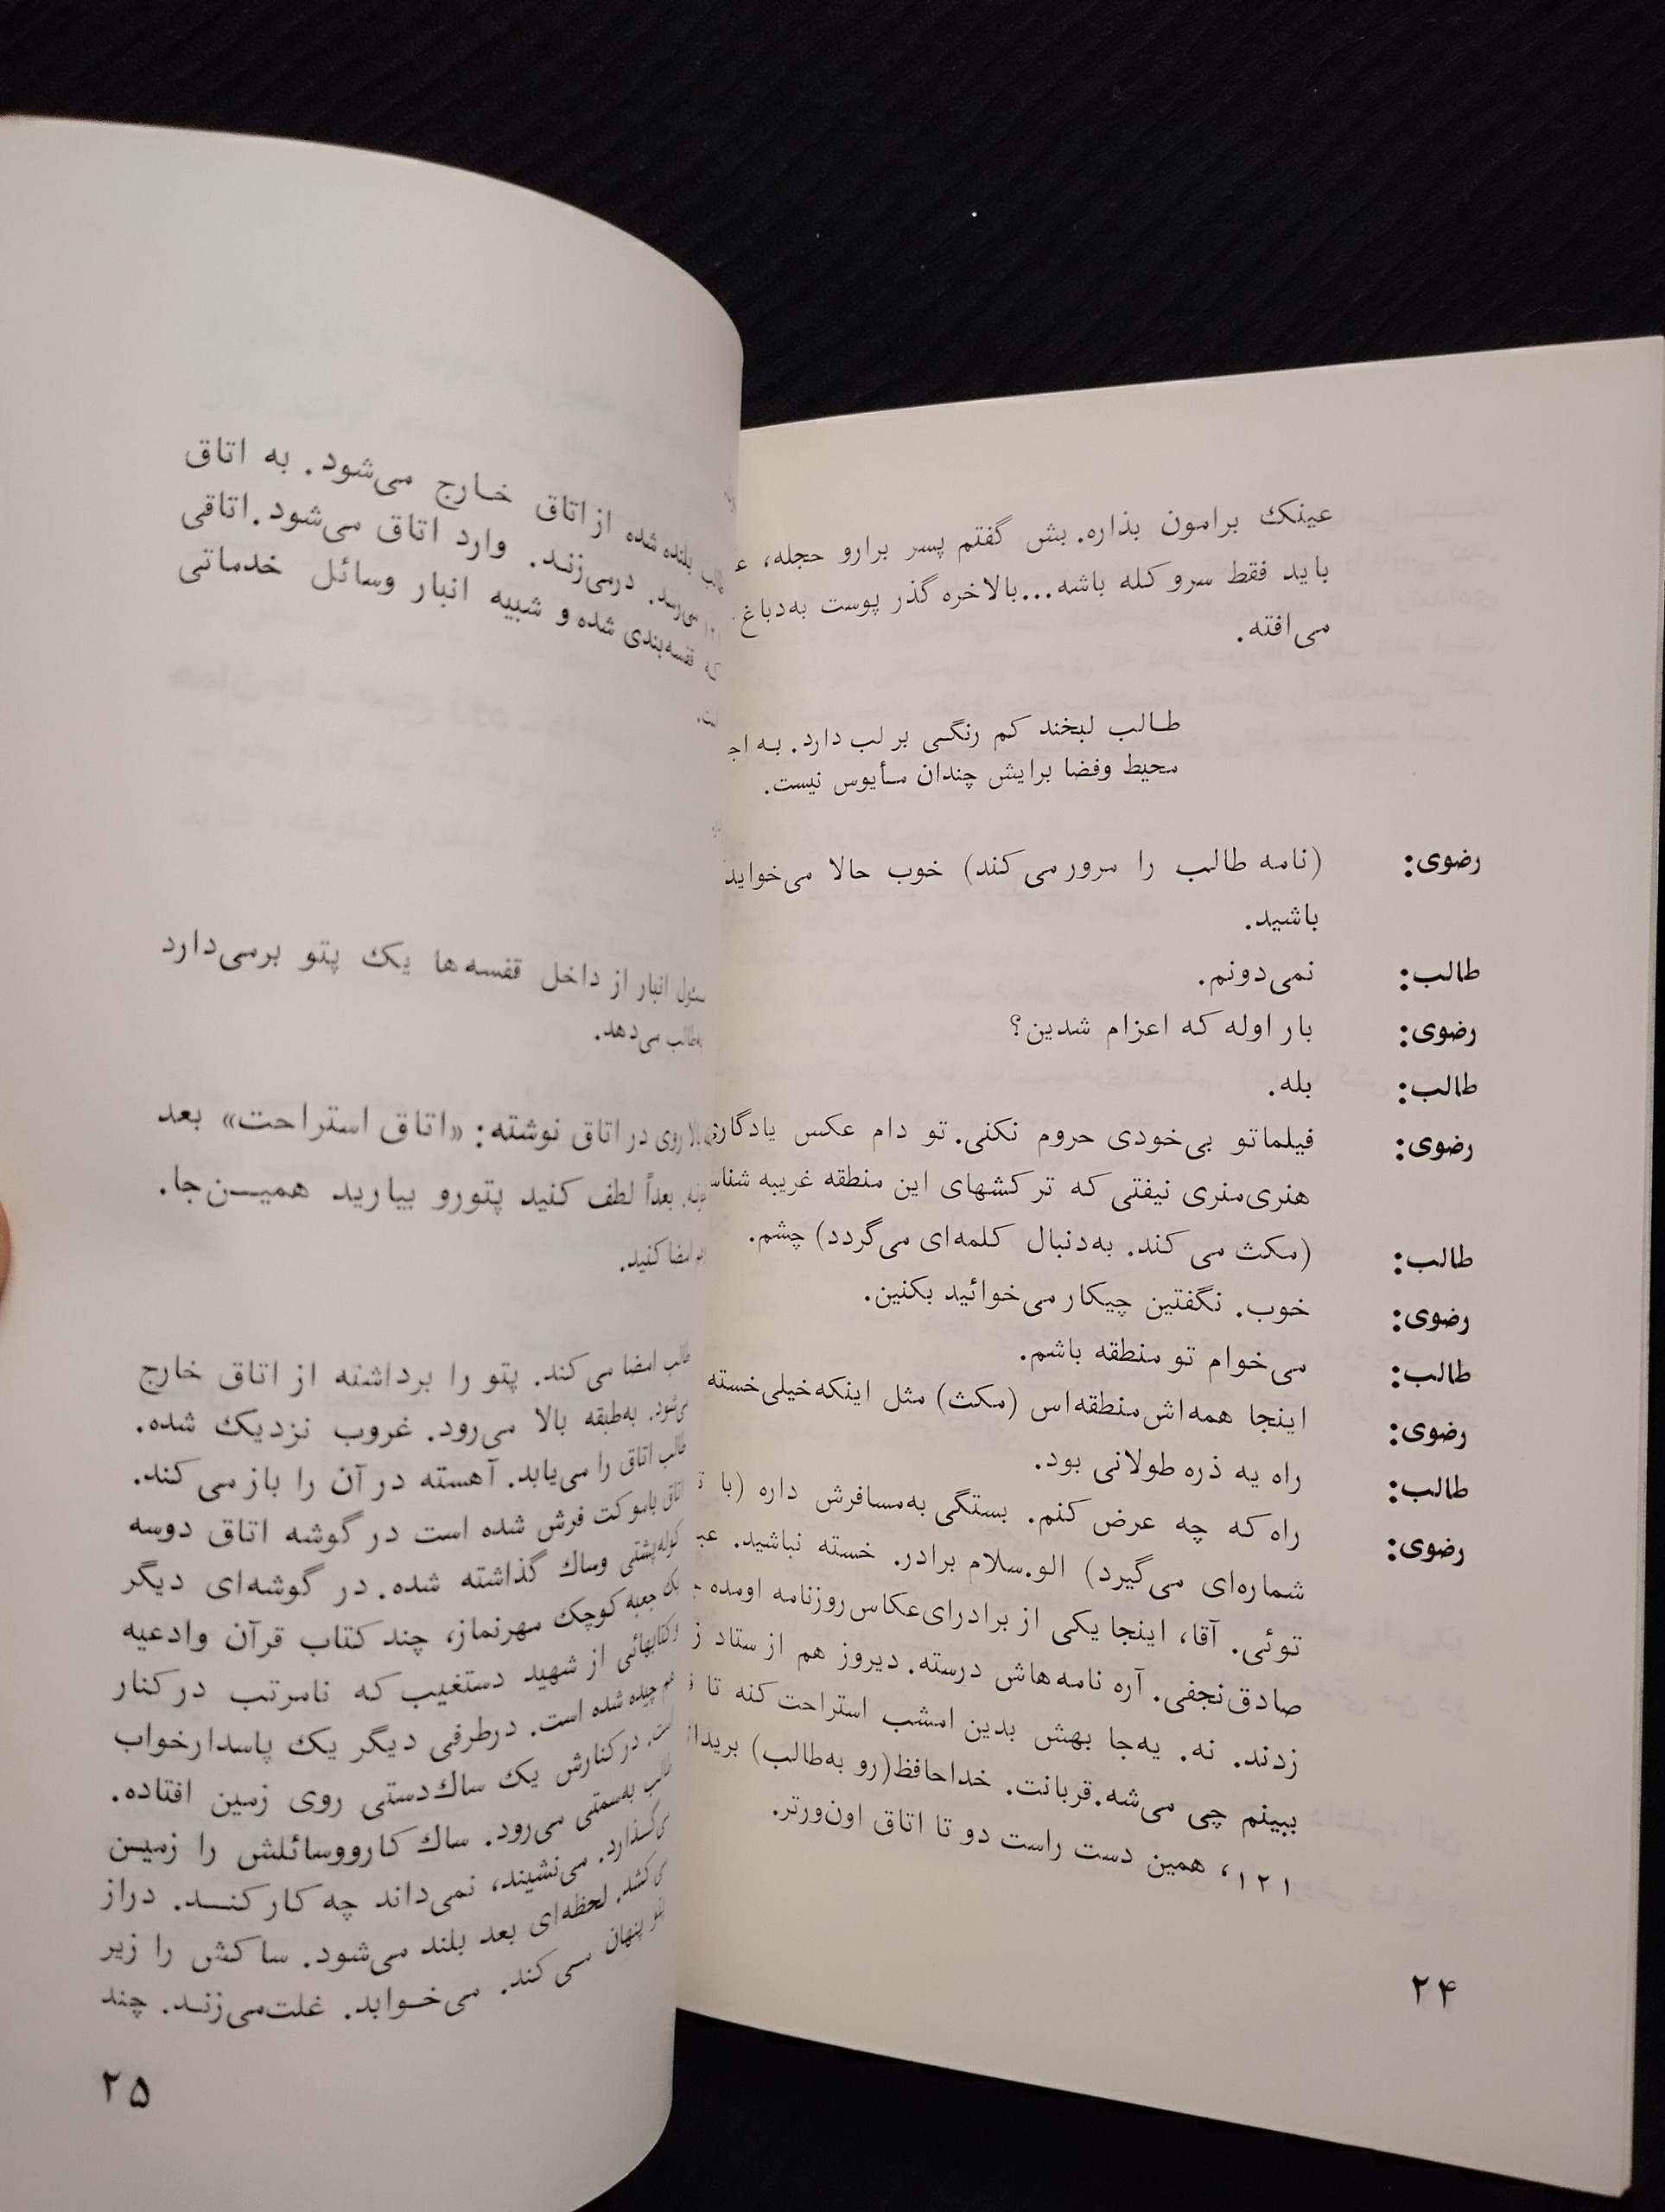 عینک برامون بذاره. بش گفتم پسر برارو حجله،
باید فقط سرو کله باشه...بالاخره گذر پوست به‌دباغ
می‌افته.
طالب لبخند کم رنگی بر لب دارد. به
محیط وفضا برایش چندان مأیوس نیست.
رضوی: (نامه طالب را مرور می‌کند) خوب حالا می‌خواید
باشید.
طالب: نمی‌دونم.
رضوی: بار اوله که اعزام شدین؟
طالب: بله.
رضوی: فیلماتو بی‌خودی حروم نکنی. تو دام عکس یادگاری
هنری‌منری نیفتی که ترکشهای این منطقه غریبه
طالب: (مکث می کند. به‌دنبال کلمه‌ای می‌گردد) چشم.
رضوی: خوب. نگفتین چیکار می‌خوائید بکنین.
طالب: می‌خوام تو منطقه باشم.
رضوی: اینجا همه‌اش‌منطقه‌اس (مکث) مثل اینکه‌خیلی‌خسته
طالب: راه یه ذره طولانی بود.
رضوی: راه که چه عرض کنم. بستگی به‌مسافرش داره (با
شماره‌ای می‌گیرد) الو.سلام برادر. خسته نباشید.
توئی. آقا، اینجا یکی از برادرای‌عکاس‌روزنامه اومده
صادق‌نجفی. آره نامه‌هاش درسته. دیروز هم از ستاد
زدند. نه. یه‌جا بهش بدین امشب استراحت کنه تا
ببینم چی می‌شه.قربانت. خداحافظ(رو به‌طالب)
۱۲۱، همین دست راست دو تا اتاق اون‌ورتر.
۲۴
بلنده شده از اتاق خارج می‌شود. به اتاق
می‌رسد. درمی‌زند. وارد اتاق می‌شود.اتاقی
قفسه‌بندی شده و شبیه انبار وسائل خدماتی
انبار از داخل قفسه‌ها یک پتو برمی‌دارد
می‌دهد.
روی در اتاق نوشته: «اتاق استراحت» بعد
بعداً لطف کنید پتورو بیارید همین‌جا.
امضا کنید.
طالب امضا می کند. پتو را برداشته از اتاق خارج
می‌شود. به‌طبقه بالا می‌رود. غروب نزدیک شده.
طالب اتاق را می‌یابد. آهسته در آن را باز می کند.
اتاق باموکت فرش شده است در گوشه اتاق دوسه
کوله‌پشتی وساک گذاشته شده. در گوشه‌ای دیگر
یک جعبه کوچک مهرنماز، چند کتاب قرآن وادعیه
و کتابهائی از شهید دستغیب که نامرتب در کنار
هم چیده شده است. درطرفی دیگر یک پاسدارخواب
است. در کنارش یک ساک‌دستی روی زمین افتاده.
طالب به‌سمتی می‌رود. ساک کارووسائلش را زمین
می‌گذارد. می‌نشیند، نمی‌داند چه کار کند. دراز
می‌کشد. لحظه‌ای بعد بلند می‌شود. ساکش را زیر
پتو پنهان می کند. می‌خوابد. غلت‌می‌زند. چند
۲۵